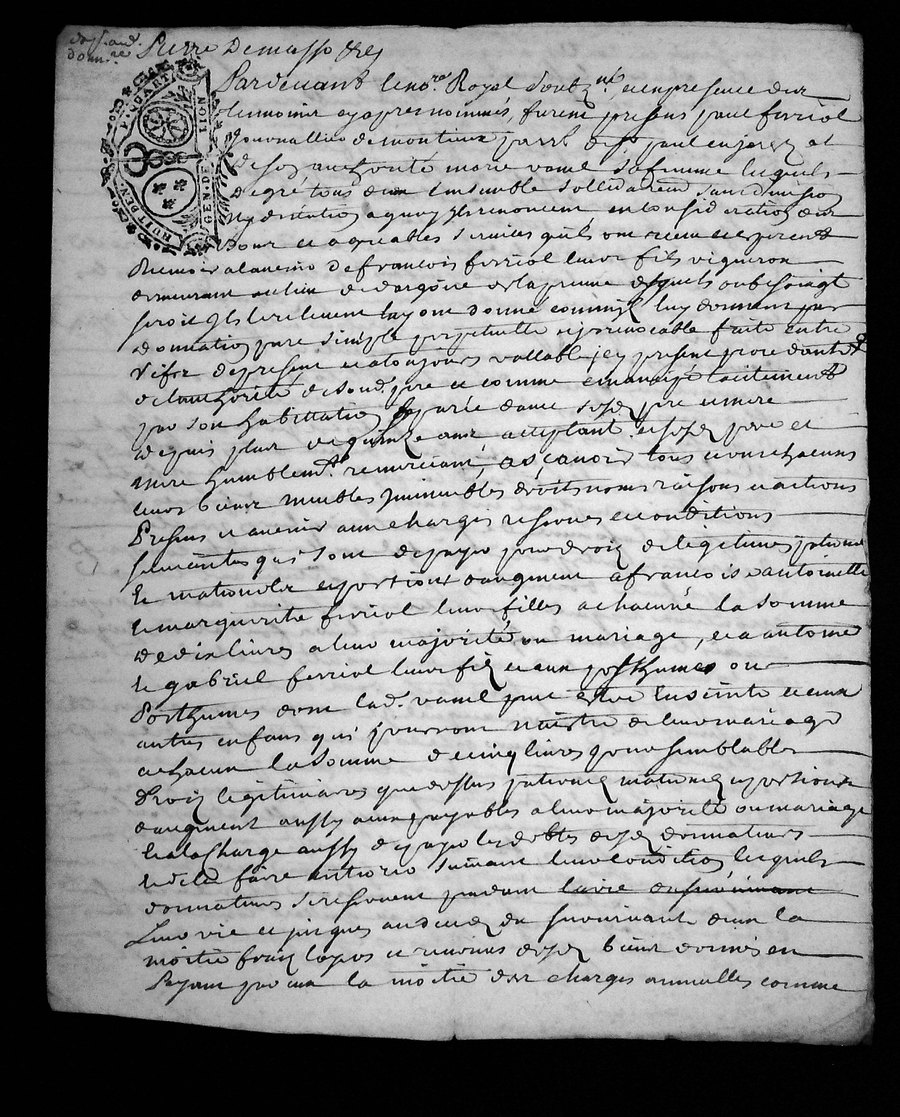 Pierre Demasso
HUIT DEN. P. QUART GEN. DE LION
Pardevant le no.re Royal Soubz.né, et en presence des
temoins cy apres nommés, furent presens paul ferriol
Journallier de montieux parr. de St paul en jarez et
de soy authorité marie vanel sa femme lesquels
de gré tous deux Ensemble sollidairem.t sans division
ny discution a quoy ils renoncent en consideration des
bons et agreables services qu'ils ont receu et esperent
Recevoir a l'avenir de francois ferriol leur fils vigneron
demeurant au lieu de dargoire
de leur gré ils ont donné comme ils luy donnent par
donnation pure simple perpetuelle irrevocable faite entre
Vifs des present et a toujours vallable icy present procedant de
de l'authorité de sond. pere et comme emancipé tacitement
par son habittation separée d'avec sesd. pere et mere
depuis plus de quinze ans acceptant et sesd. pere et
mere humblem.t remerciant a sçavoir tous et un chacuns
leurs biens meubles immeubles droits noms raisons et actions
Presens et avenir aux charges reserves et conditions
suivantes qui sont de payer pour droit de legitimes paternel
et maternelle et portions d'augment a francoise antoinette
et marguerite ferriol leurs filles a chacune la somme
de dix livres a leur majorité ou mariage, et a antoine
et gabriel ferriol leurs fils et aux posthumes ou
Posthumes dont lad. vanel peut estre Enceinte et aux
autres enfans qui pourront naistre de leur mariage
a chacun la somme de cinq livres pour semblables
droits legitimaires que dessus paternel maternel et portions
d'augment aussy aux payables a leur majorité ou mariage
et a la charge aussy de payer les debtes desd. donnateurs
et de les faire enterrer suivant leur condition lesquels
donnateurs se reservent pendant la vie du survivant
leur vie et jusques au deces du survivant d'eux la
moitié fruits et revenus desd. biens donnés en
Payant par eux la moitié des charges annuelles comme